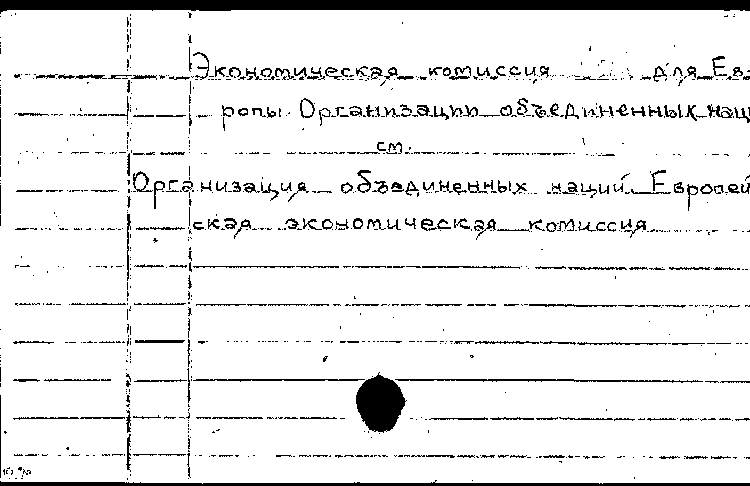 Экономическая комиссия для Ев-
ропы Организации объединенных наци
см.
Организация объединенных наций. Европей
ская экономическая комиссия